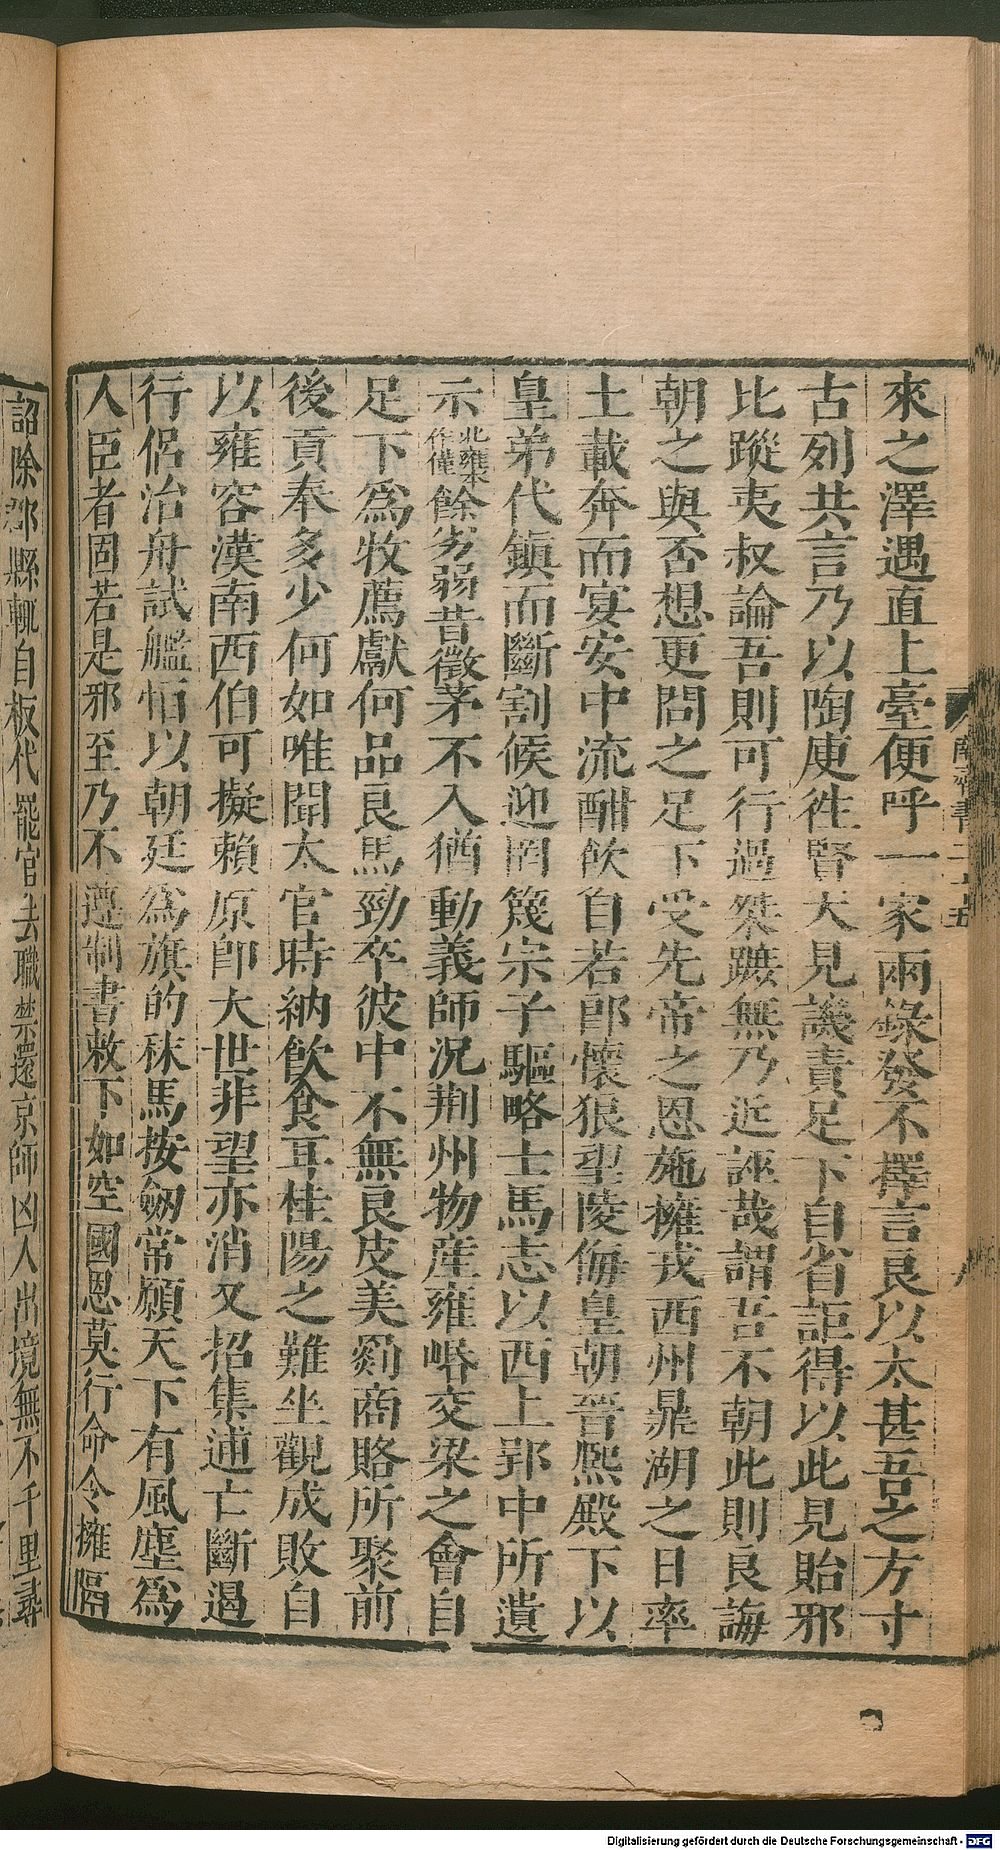 來之澤遇直上臺便呼一家兩錄發不擇言良以太甚吾之方寸
古列共言乃以陶庾徃賢大見譏責足下自省詎得以此見貽邪
比蹤夷叔論吾則可行過桀蹠無乃近誣哉謂吾不朝此則良誨
朝之與否想更問之足下受先帝之恩施擁戎西州鼎湖之日率
土載奔而宴安中流酣飲自若卽懷狼望陵侮皇朝晉熙殿下以
皇弟代鎮而斷割候迎罔篾宗子驅略士馬志以西上郢中所遺
示北雍本作僅餘劣弱昔徵茅不入猶動義師況荆州物産雍㟭交梁之會自
足下爲牧薦獻何品良馬勁卒彼中不無良皮美罽商賂所聚前
後貢奉多少何如唯聞太官時納飲食耳桂陽之難坐觀成敗自
以雍容漢南西伯可擬賴原卽大世非望亦消又招集逋亡斷遏
行侶治舟試艦恒以朝廷爲旗的秣馬按劒常願天下有風塵爲
人臣者固若是邪至乃不遵制書敕下如空國恩莫行命令擁隔
詔除郡縣輒自板代罷官去職禁還京師凶人出境無不千里尋
南齊書二十五
Digitalisierung gefördert durch die Deutsche Forschungsgemeinschaft - DFG